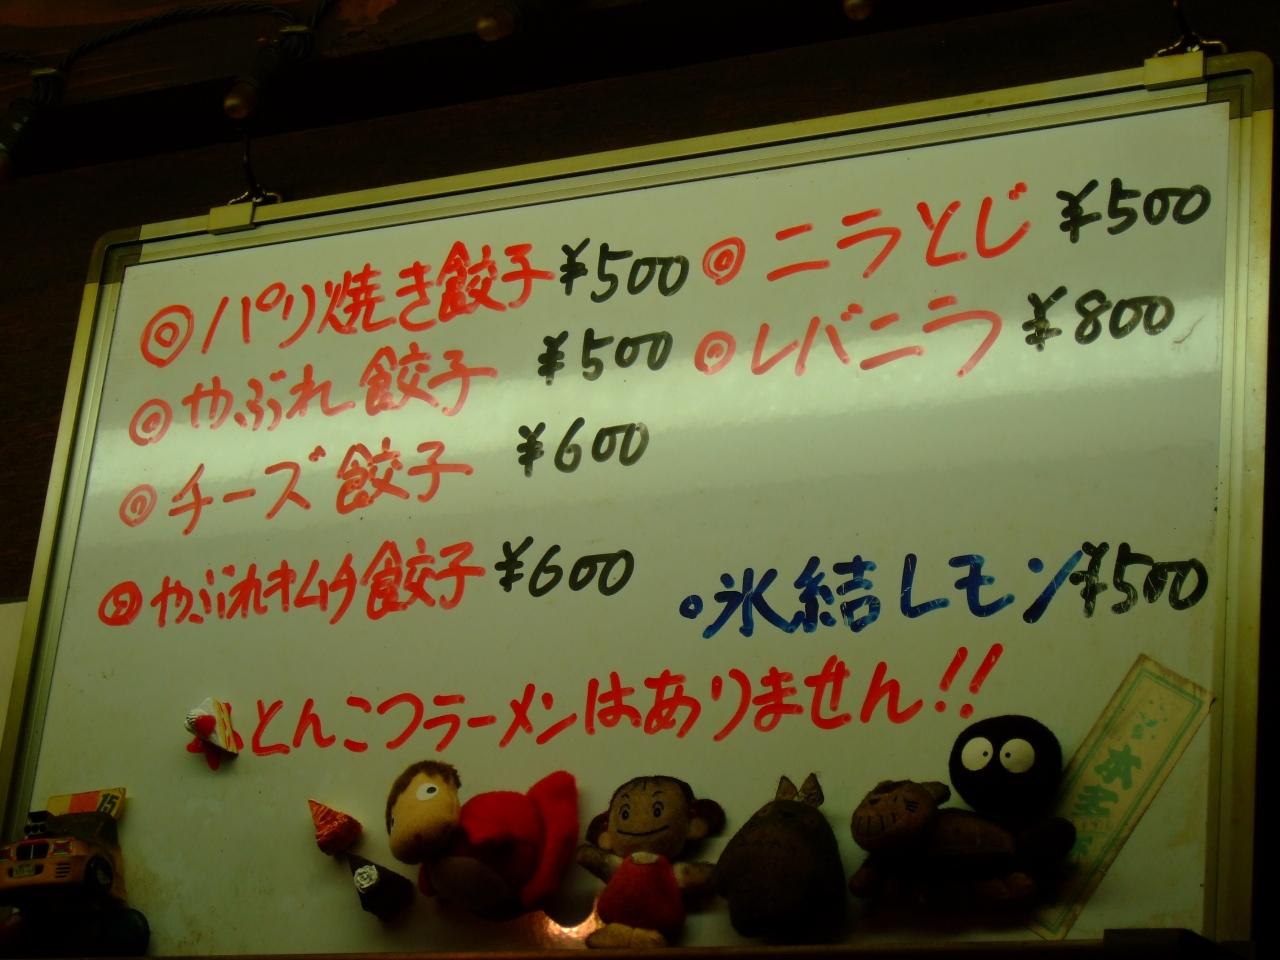 ◎パリ焼き餃子 ¥500
◎やぶれ餃子 ¥500
◎チーズ餃子 ¥600
◎やぶれキムチ餃子 ¥600
◎ニラとじ ¥500
◎レバニラ ¥800
。氷結レモン ¥500
とんこつラーメンはありません!!
15